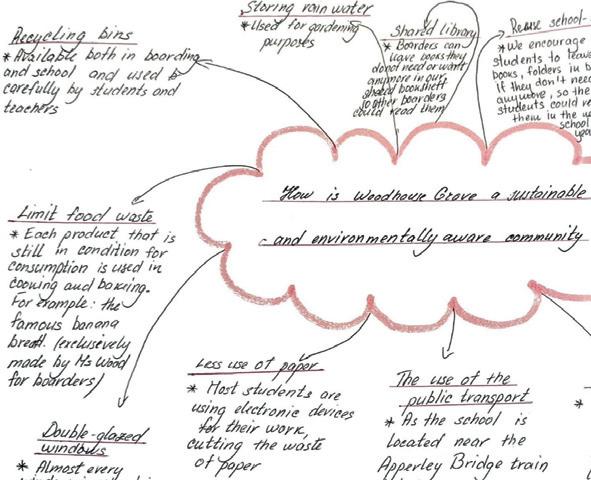 Recycling bins
* Available both in boarding
and school and used
carefully by students and
teachers
Storing rain water
* Used for gardening
purposes
Shared library
* Boarders can
leave books they
do not read or want
anymore in our
shared bookshelf
so other boarders
could read them
Reuse school-
* We encourage
students to leave
books, folders in
If they don't need
anymore, so the
students could
them in the
school
How is Woodhouse Grove a sustainable
and environmentally aware community
Limit food waste
* Each product that is
still in condition for
consumption is used in
cooking and baking.
For example: the
famous banana
bread. (exclusively
made by Ms Wood
for boarders)
Double-glazed
windows
* Almost every
Less use of paper
* Most students are
using electronic devices
for their work,
cutting the waste
of paper
The use of the
public transport
* As the school is
located near the
Apperley Bridge train
*